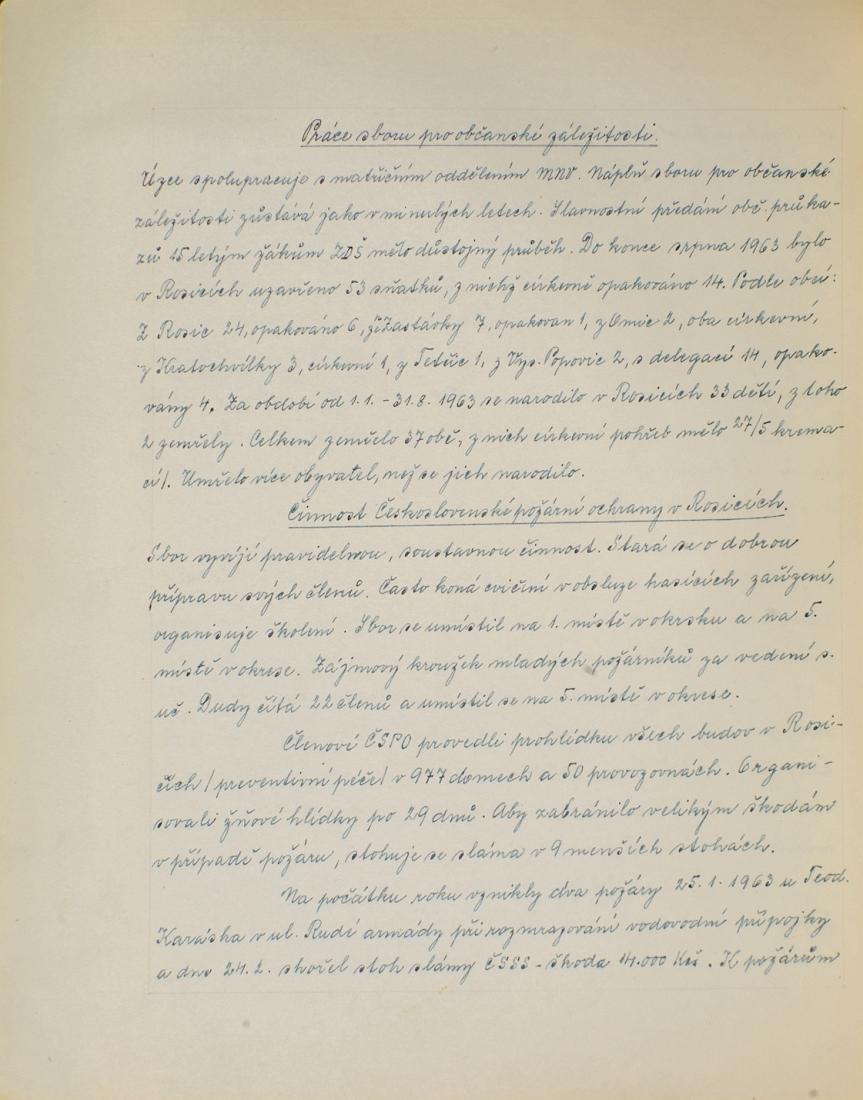 Práce sboru pro občanské záležitosti.
Úzce spolupracuje s matričním oddělením MNV. Náplň sboru pro občanské
záležitosti zůstává jako v minulých letech. Slavnostní předání obč. průka-
zů 15 letým žákům ZDŠ mělo důstojný průběh. Do konce srpna 1963 bylo
v Rosicích uzavřeno 53 sňatků, z nichž církevně opakováno 14. Podle obcí:
Z Rosic 24, opakováno 6, ze Zastávky 7, opakovan 1, z Omic 2, oba církevní,
z Kratochvilky 3, církevní 1, z Tetčic 1, z Vys. Popovic 2, s delegací 14, opako-
vány 4. Za období od 1.1. - 31.8. 1963 se narodilo v Rosicích 33 dětí, z toho
2 zemřely. Celkem zemřelo 37 obč., z nich církevní pohřeb mělo 27/5 krema-
cí/. Umřelo více obyvatel, než se jich narodilo.
Činnost Československé požární ochrany v Rosicích.
Sbor vyvíjí pravidelnou, soustavnou činnost. Stará se o dobrou
přípravu svých členů. Často koná cvičení v obsluze hasících zařízení,
organisuje školení. Sbor se umístil na 1. místě v okrsku a na 5.
místě v okrese. Zájmový kroužek mladých požárníků za vedení s.
uč. Dudy čítá 22 členů a umístil se na 5. místě v okrese.
Členové ČSPO provedli prohlídku všech budov v Rosi-
cích /preventivní péče/ v 977 domech a 50 provozovnách. Organi-
sovali žňové hlídky po 29 dnů. Aby zabránilo velikým škodám
v případě požáru, stohuje se sláma v 9 menších stohách.
Na počátku roku vznikly dva požáry 25.1.1963 u Teod.
Karáska v ul. Rudé armády při rozmrazování vodovodní přípojky
a dne 24.2. shořel stoh slámy ČSSS - škoda 4.000 Kčs. K požárům